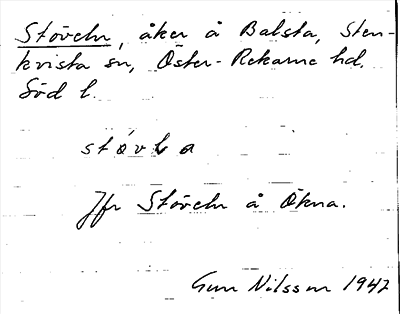 Stöveln, åker å Balsta, Sten-
kvista sn, Öster-Rekarne hd.
Söd l.
stövla
Jfr Stöveln å Ökna.
Gun Nilsson 1947